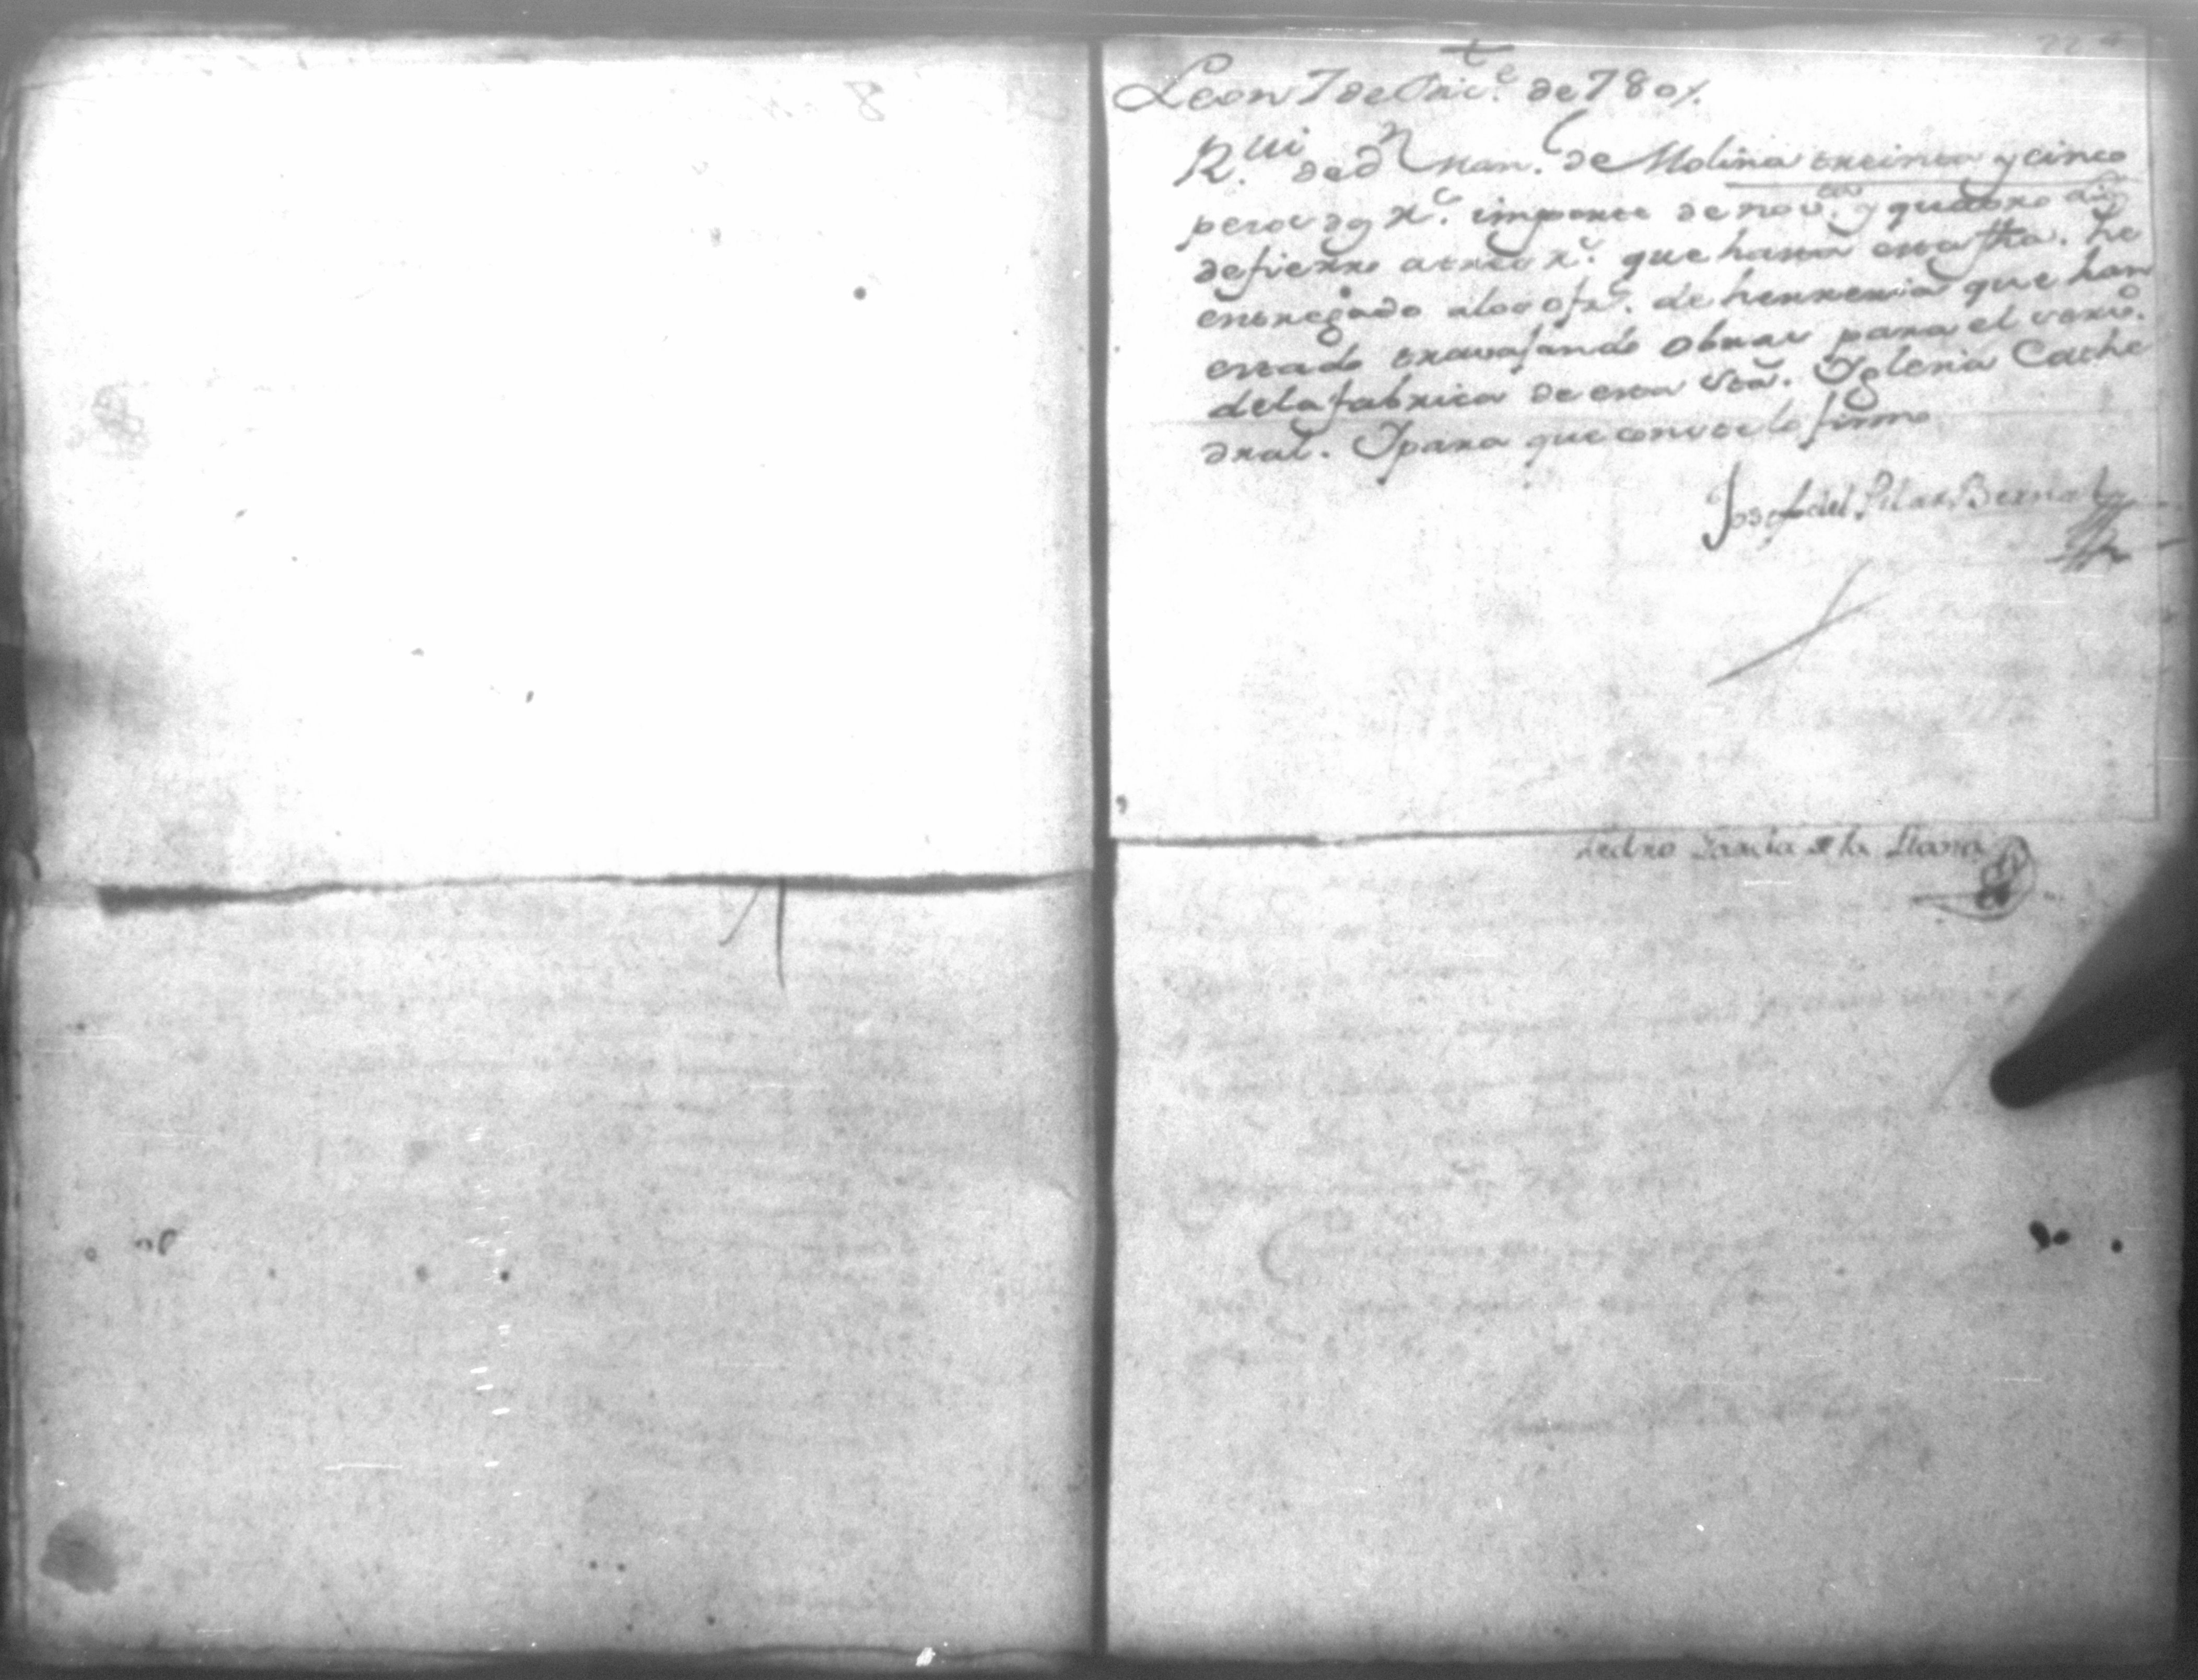 Leon 7 de Dic.e de 780,,
R.vi de Dn Man.l de Molina treinta y cinco
pesos dos r.s importe de nov.ta y quatro
de fierro a tres r.s que hasta esta fha. he
entregado a los ofs. de herreria que han
estado travajando obras para el
de la fabrica de esta Sta. Yglesia Cathe
dral. Y para que conste lo firmo
Josef del Pilar Bernal
Pedro Garcia de la Llana